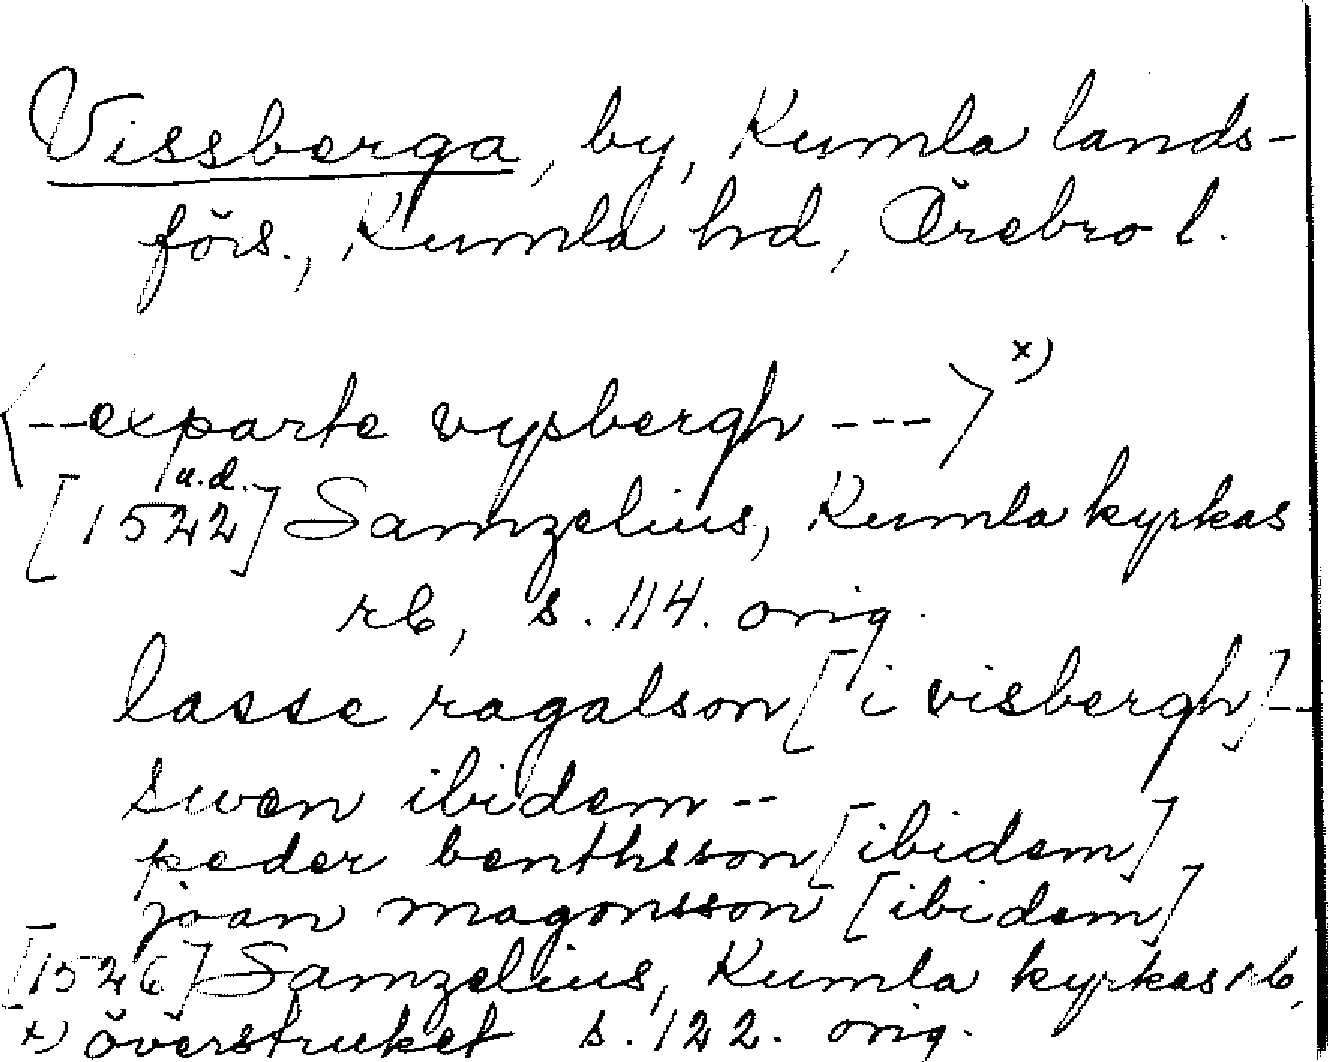 Vissberga, by, Kumla lands-
förs., Kumla hd, Örebro l.
<--exparte vysbergh --->x)
[1522] u.d. Samzelius, Kumla kyrkas
rb, s. 114. orig.
lasse ragalson [i visbergh]--
swen ibidem --
peder benthsson [ibidem]
joan magonsson [ibidem]
[1526] Samzelius, Kumla kyrkas rb,
x) överstruket s. 122. orig.